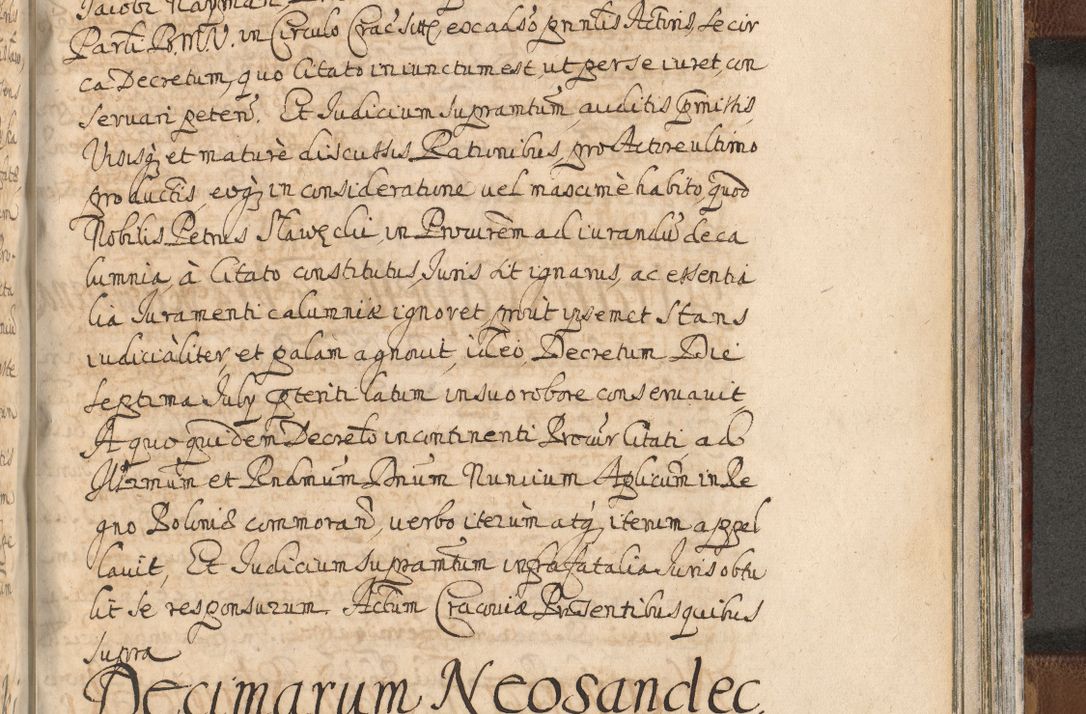 Jacobi Nayman
Parti B.M.V. in Circulo Crac. sitæ, ex causo pntlis Actoris, se cir
ca Decretum, quo Citato iniunctum est, ut per se iuret, con
seruari peten. Et Judicium supramtum, auditis pmissis,
Visisq; et maturè discussis Rationibus, pro Actore ultimo
productis, eoq; in consideratione uel maximè habito, quod
Nobilis Petrus Slawęcki, in Procurem ad iurandũ de ca
lumnia, à Citato constitutus, Juris sit ignarus, ac essentia
lia Juramenti calumniæ ignoret prout ipsemet stans
iudicialiter, et palam agnouit, ideo Decretum Die
septima July pteriti latum in suo robore conseruauit,
A quo quidem Decreto incontinenti Procur Citati, ad
Illrmum et Rndmum Dnum Nuncium Aplicum in Re
gno Poloniæ commoran, uerbo iterùm atq; iterum appel
lauit, Et Judicium supramtum infra fatalia Juris obtu
lit se responsurum. Actum Cracouiæ Præsentibus quibus
supra
Decimarum Neosandec.